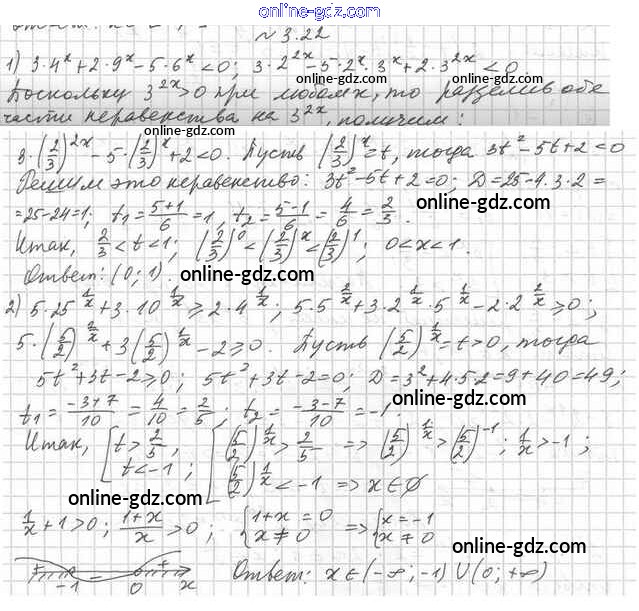 online-gdz.com
№ 3.22
1) 3·4^x + 2·9^x − 5·6^x < 0; 3·2^{2x} − 5·2^x·3^x + 2·3^{2x} < 0
Поскольку 3^{2x} > 0 при любом x, то разделив обе
online-gdz.com
части неравенства на 3^{2x}, получим:
online-gdz.com
3·(2/3)^{2x} − 5·(2/3)^x + 2 < 0. Пусть (2/3)^x = t, тогда 3t² − 5t + 2 < 0
Решим это неравенство: 3t² − 5t + 2 = 0; D = 25 − 4·3·2 =
online-gdz.com
= 25 − 24 = 1; t₁ = (5+1)/6 = 1, t₂ = (5−1)/6 = 4/6 = 2/3.
Итак, 2/3 < t < 1; (2/3)^0 < (2/3)^x < (2/3)^1; 0 < x < 1.
Ответ: (0; 1).
online-gdz.com
2) 5·25^{1/x} + 3·10^{1/x} ⩾ 2·4^{1/x}; 5·5^{2/x} + 3·2^{1/x}·5^{1/x} − 2·2^{2/x} ⩾ 0;
online-gdz.com
5·(5/2)^{2/x} + 3(5/2)^{1/x} − 2 ⩾ 0. Пусть (5/2)^{1/x} = t > 0, тогда
5t² + 3t − 2 ⩾ 0; 5t² + 3t − 2 = 0; D = 3² + 4·5·2 = 9 + 40 = 49;
t₁ = (−3+7)/10 = 4/10 = 2/5; t₂ = (−3−7)/10 = −1.
online-gdz.com
Итак, [t > 2/5, t < −1; [(5/2)^{1/x} > 2/5 => (5/2)^{1/x} > (5/2)^{−1}; 1/x > −1;
(5/2)^{1/x} < −1 => x ∈ ∅
online-gdz.com
1/x + 1 > 0; (1+x)/x > 0; {1+x = 0 x ≠ 0 => {x = −1 x ≠ 0
online-gdz.com
+ − + −1 0 x
Ответ: x ∈ (−∞; −1) ∪ (0; +∞)
online-gdz.com